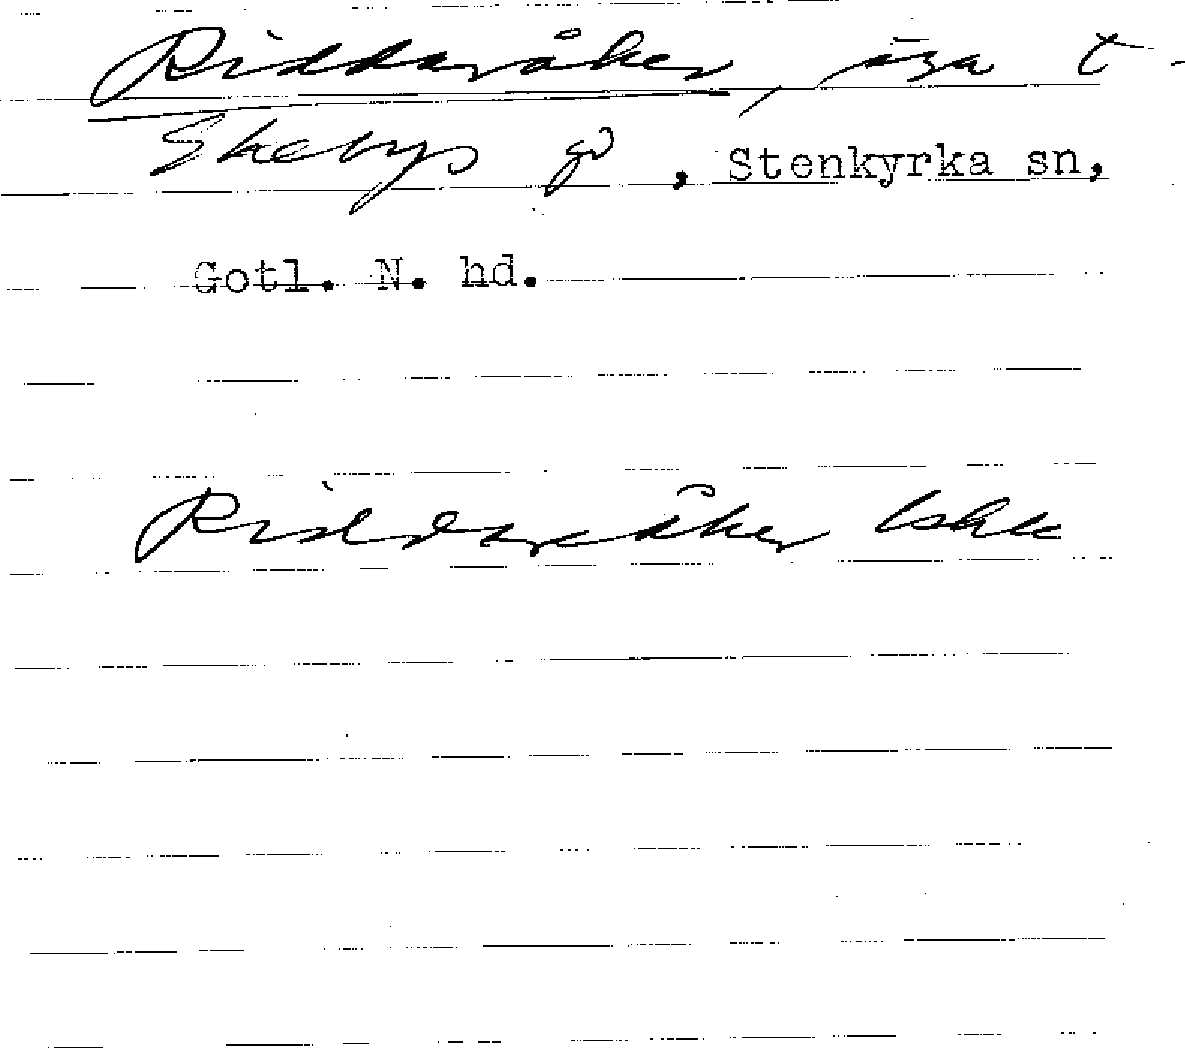 Riddaråker, äga t
Skebys gd, Stenkyrka sn,
Gotl. N. hd.
Riddaråker